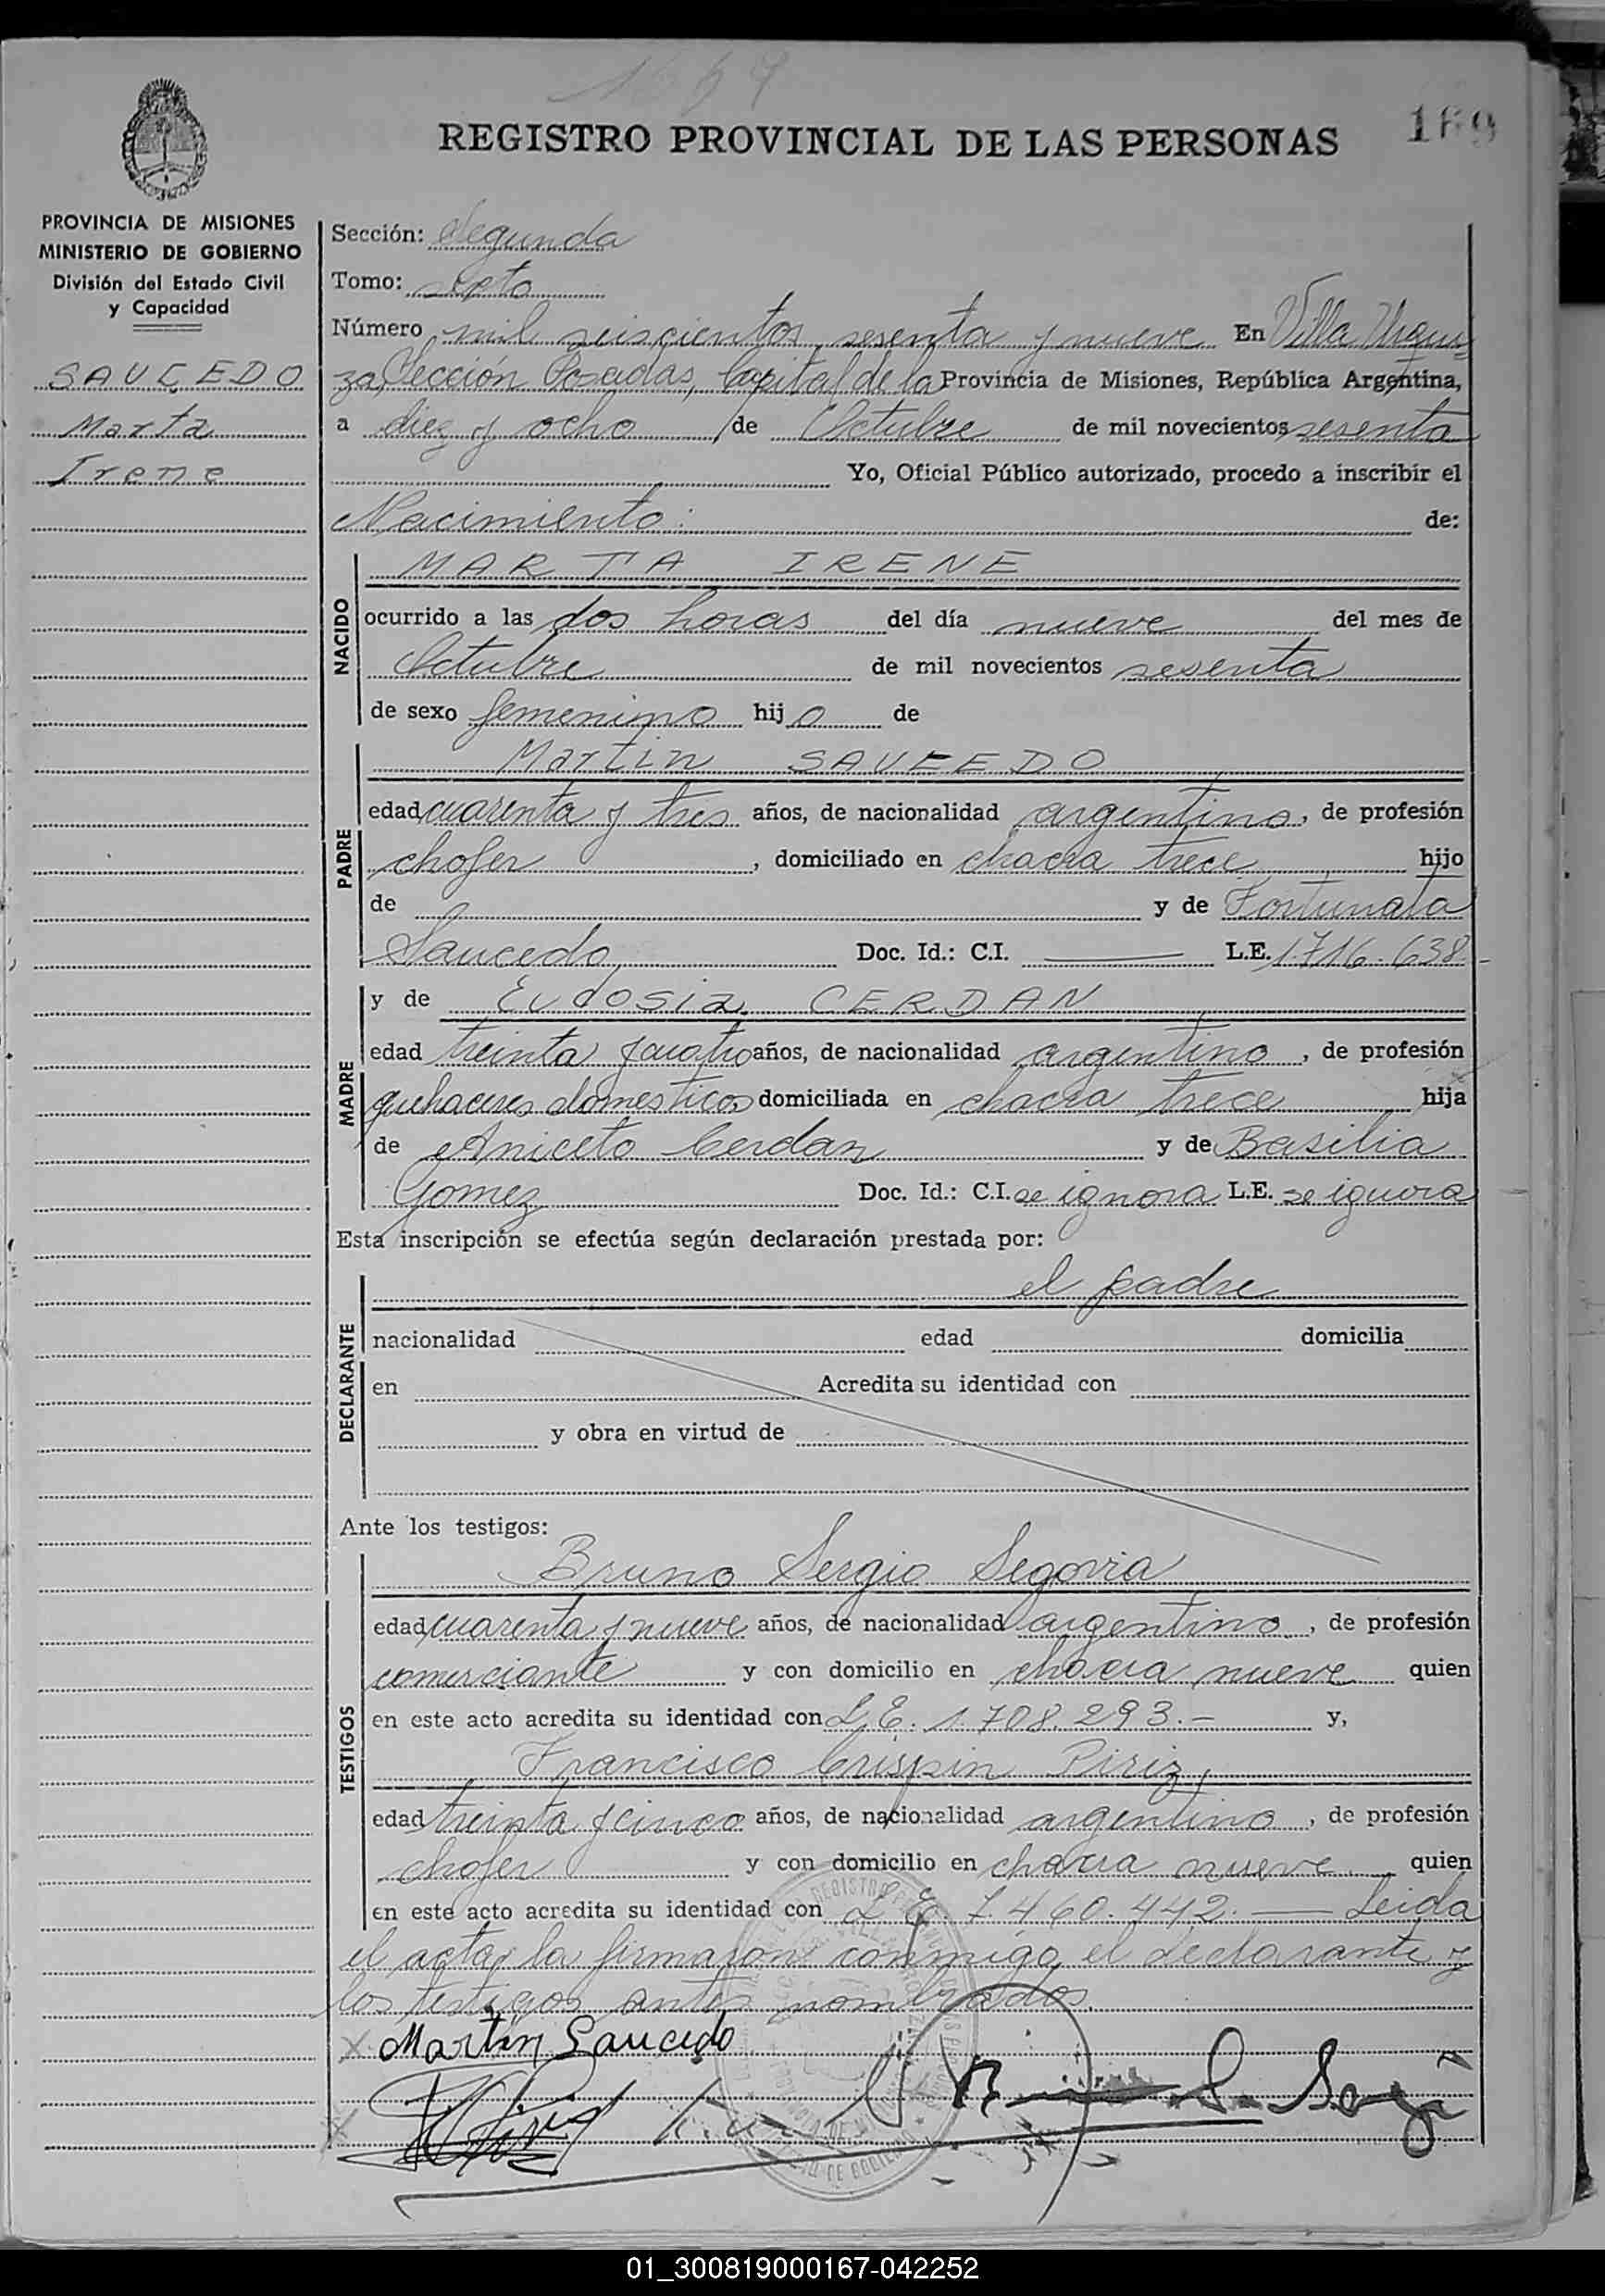 1669
REGISTRO PROVINCIAL DE LAS PERSONAS
169
PROVINCIA DE MISIONES
MINISTERIO DE GOBIERNO
División del Estado Civil
y Capacidad
SAUCEDO
Marta
Irene
Sección: Segunda
Tomo:
Número mil seiscientos sesenta y nueve En Villa Urqui-
za, Sección Posadas, Capital de la Provincia de Misiones, República Argentina,
a diez y ocho de Octubre de mil novecientos sesenta
Yo, Oficial Público autorizado, procedo a inscribir el
Nacimiento: de:
NACIDO
MARTA IRENE
ocurrido a las dos horas del día nueve del mes de
Octubre de mil novecientos sesenta
de sexo femenino hijo de
PADRE
Martin SAUCEDO
edad cuarenta y tres años, de nacionalidad argentino, de profesión
chofer, domiciliado en chacra trece hijo
de y de Fortunata
Saucedo Doc. Id.: C.I. — L.E. 1.716.638-
MADRE
y de Eudosia CERDAN
edad treinta y cuatro años, de nacionalidad argentino, de profesión
quehaceres domesticos domiciliada en chacra trece hija
de Aniceto Cerdan y de Basilia
Gomez Doc. Id.: C.I. se ignora L.E. se ignora
Esta inscripción se efectúa según declaración prestada por:
DECLARANTE
el padre
nacionalidad edad domicilia
en Acredita su identidad con
y obra en virtud de
Ante los testigos:
TESTIGOS
Bruno Sergio Segovia
edad cuarenta y nueve años, de nacionalidad argentino, de profesión
comerciante y con domicilio en chacra nueve quien
en este acto acredita su identidad con L.E. 1.708.293.- y,
Francisco Crispin Piriz
edad treinta y cinco años, de nacionalidad argentino, de profesión
chofer y con domicilio en chacra nueve quien
en este acto acredita su identidad con L.E. 7.460.442. — Leida
el acta, la firmaron conmigo, el declarante y
los testigos antes nombrados.
X Martin Saucedo
01_300819000167-042252